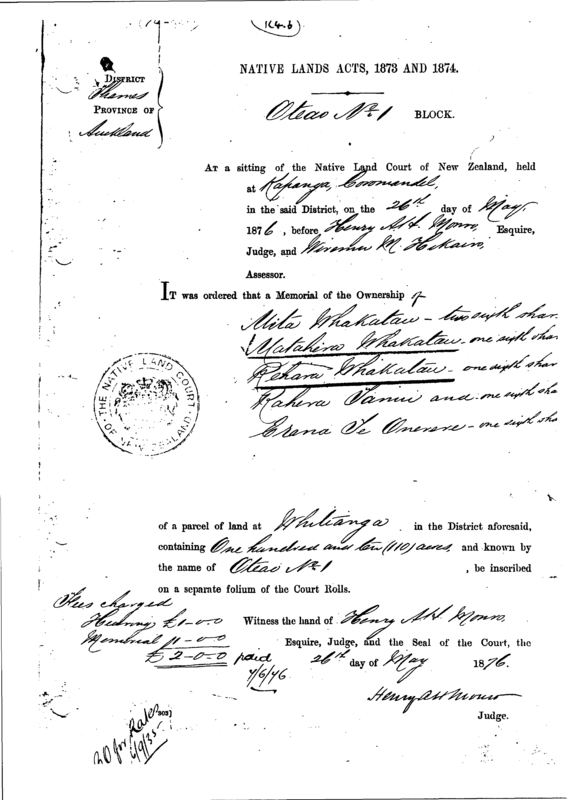 (K4.6)
DISTRICT
Thames
PROVINCE OF
Auckland
NATIVE LANDS ACTS, 1873 AND 1874.
Oteao No. 1 BLOCK.
AT a sitting of the Native Land Court of New Zealand, held
at Kapanga, Coromandel,
in the said District, on the 26th day of May,
1876, before Henry A. H. Monro, Esquire,
Judge, and Wiremu M. Hikairo,
Assessor.
IT was ordered that a Memorial of the Ownership of
Mita Whakatau - two sixth shar
Matahera Whakatau - one sixth shar
Rehara Whakatau - one sixth shar
Kahera Tanui and - one sixth sha
Erana Te Onerere - one sixth sha
THE NATIVE LAND COURT OF NEW ZEALAND
of a parcel of land at Whitianga in the District aforesaid,
containing One hundred and ten (110) acres, and known by
the name of Oteao No. 1, be inscribed
on a separate folium of the Court Rolls.
Fees charged
Hearing £1-0-0
Memorial £1-0-0
£2-0-0 paid
7/6/76
Witness the hand of Henry A. H. Monro,
Esquire, Judge, and the Seal of the Court, the
26th day of May 1876.
Henry A H Monro
Judge.
303]
20 for Rates
6/9/35